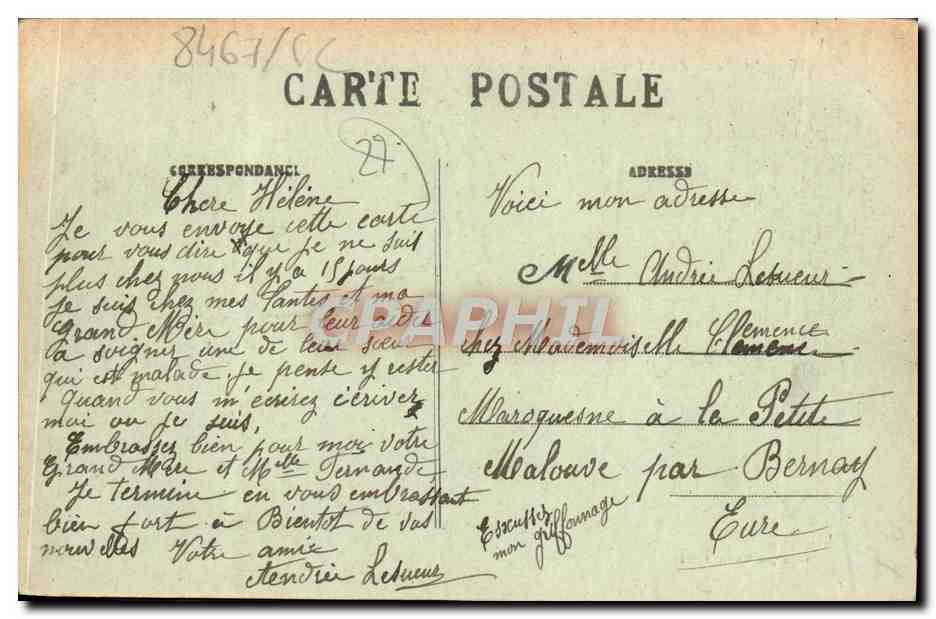 8467/SC
CARTE POSTALE
27
CORRESPONDANCE
Chere Hélène
Je vous envoye cette carte
pour vous dire que je ne suis
plus chez nous il y a 15 jours
je suis chez mes tantes et ma
Grand Mère pour leur aider
a soigner une de leur sœur
qui est malade je pense y rester
Quand vous m'ecrirez ecriver
moi ou je suis,
Embrassez bien pour moi votre
Grand Mère et Melle Fernande
Je termine en vous embrassant
bien fort à Bientot de vos
nouvelles Votre amie
Andrée Lesueur
ADRESSE
Voici mon adresse
Melle Andrée Lesueur
chez Mademoiselle Clemence
Maroquesne à la Petite
Malouve par Bernay
Eure
Excussez
mon griffonnage
CPAPHIL